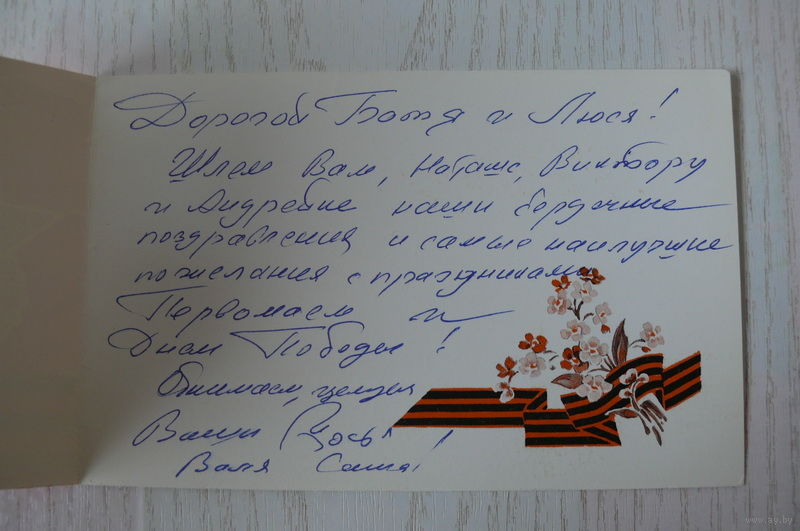 ДорогойБотя и Люся!
Шлем Вам, Наташе, Виктору
и Андрейке наши сердечные
поздравления и самые наилучшие
пожелания с праздниками
Первомаем и
Днем Победы!
Обнимаем, целуем
Ваши
Валя Саша!
www.ay.by